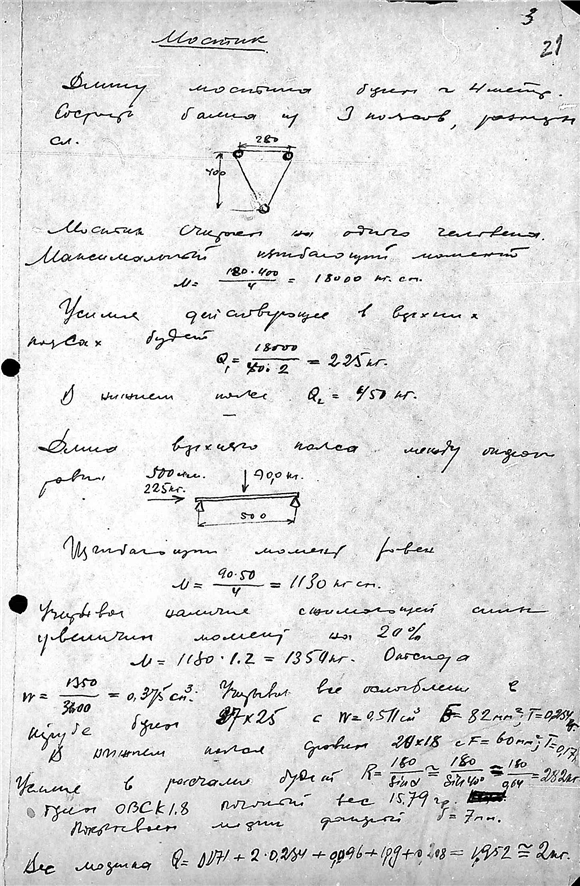 3
21
Мостик
Длину мостика берем ~ 4 метр.
балка из 3 поясов, размеры
см.
280
400
Мостик считаем на одного человека.
Максимальный изгибающий момент
M = 180·400 / 4 = 18000 кг.см.
Усилие действующее в верхних
поясах будет
Q₁ = 18000 / 40·2 = 225 кг.
В нижнем поясе Q₂ = 450 кг.
Длина верхнего пояса между опорами
равна 500 мм. 90,0 кг.
225 кг.
500
Изгибающий момент равен
M = 90·50 / 4 = 1130 кг см.
Учитывая наличие сжимающей силы
увеличим момент на 20%
M = 1130·1.2 = 1350 кг. Отсюда
W = 1350 / 3600 = 0,375 см³. Учитывая все ослабление в
берем 27×25 с W = 0.511 см³ F = 82 мм²; T = 0,234
В нижнем поясе ставим 20×18 с F = 60 мм²; T = 0,171
Усилие в расчалке будет R = 180 / Sin α ≅ 180 / Sin 40° = 180 / 0,64 = 282 кг
берем ОВСК 1.8 погонный вес 15.79 гр.
фанерой δ = 7 мм.
Вес мостика Q = 0,171 + 2·0,234 + 0,096 + 1,09 + 0,208 = 1,952 ≅ 2 кг.